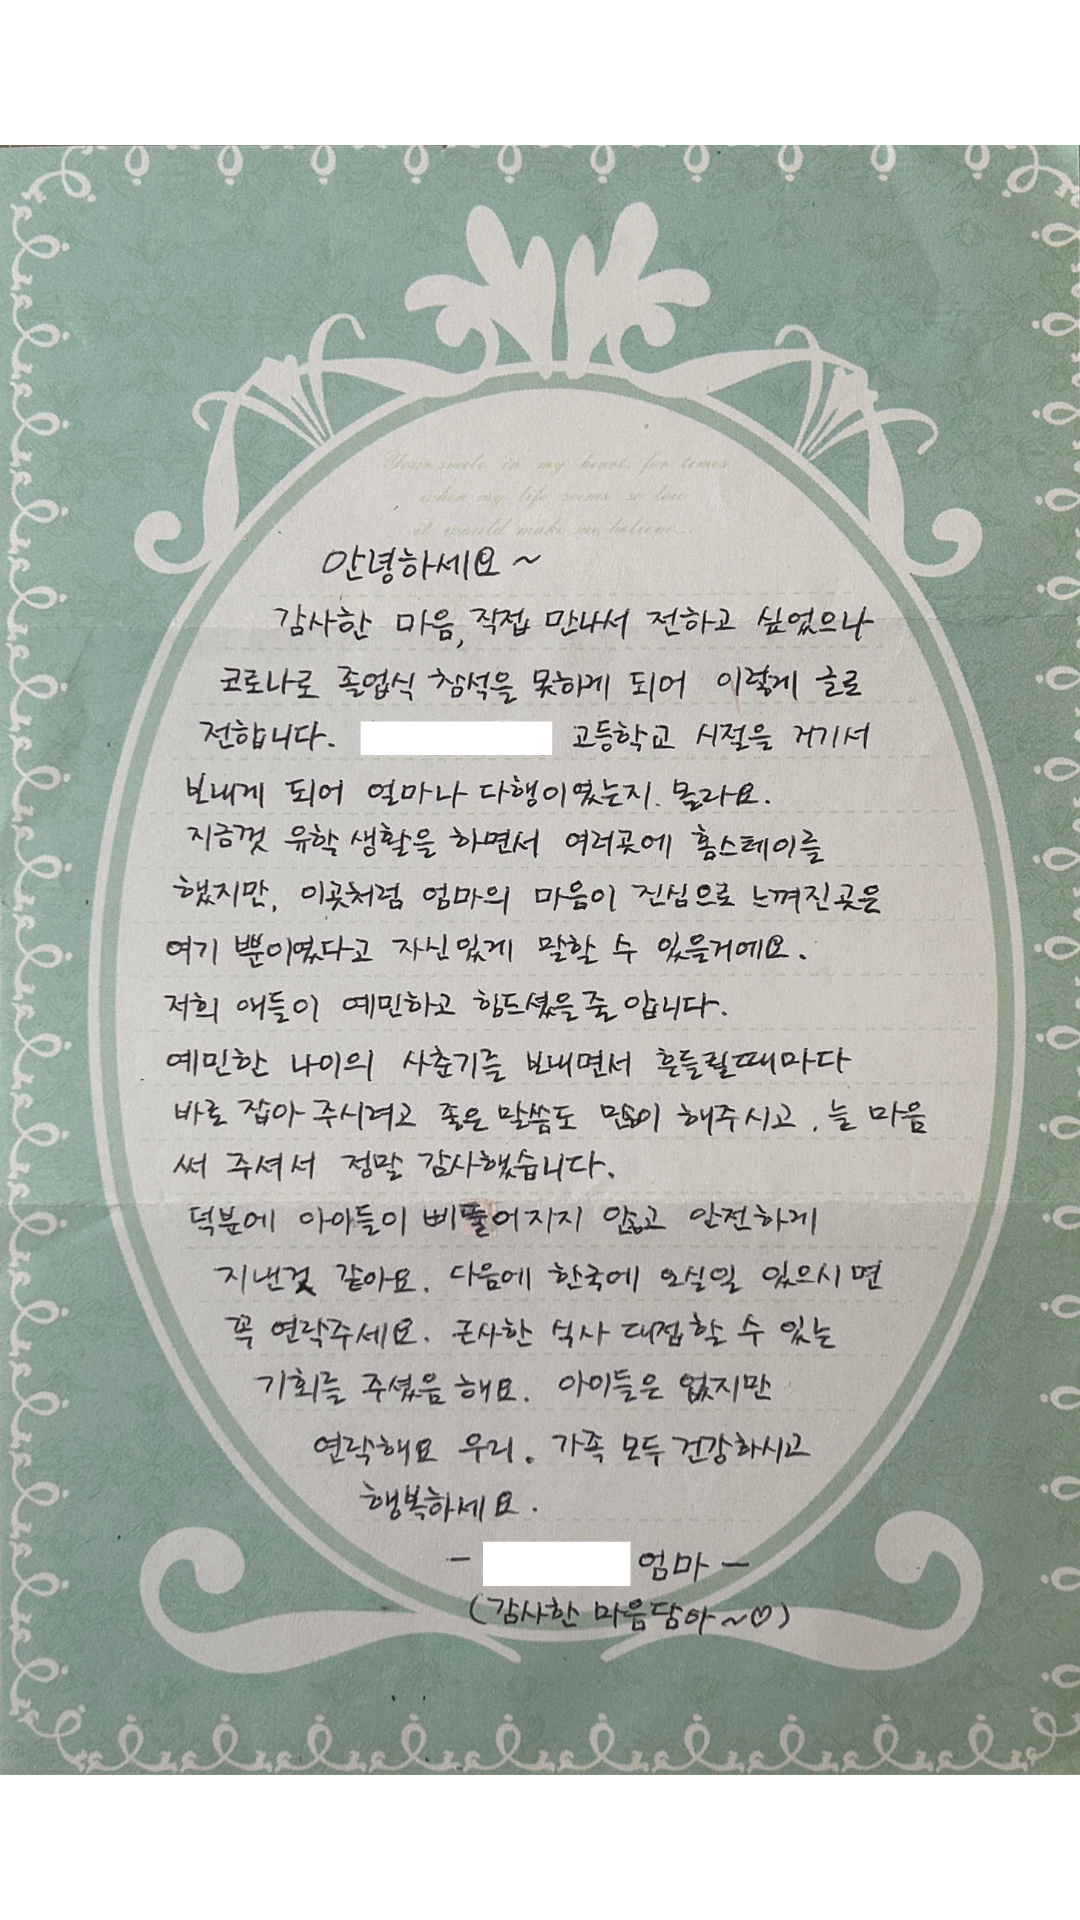 Your smile in my heart, for times
when my life seems so low
it would make me believe...
안녕하세요~
감사한 마음, 직접 만나서 전하고 싶었으나
코로나로 졸업식 참석을 못하게 되어 이렇게 글로
전합니다. 고등학교 시절을 거기서
보내게 되어 얼마나 다행이였는지. 몰라요.
지금껏 유학 생활을 하면서 여러곳에 홈스테이를
했지만, 이곳처럼 엄마의 마음이 진심으로 느껴진곳은
여기 뿐이였다고 자신있게 말할 수 있을거에요.
저희 애들이 예민하고 힘드셨을줄 압니다.
예민한 나이의 사춘기를 보내면서 흔들릴때마다
바로 잡아 주시려고 좋은 말씀도 많이 해주시고, 늘 마음
써 주셔서 정말 감사했습니다.
덕분에 아이들이 삐뚤어지지 않고 안전하게
지낸것 같아요. 다음에 한국에 오실일 있으시면
꼭 연락주세요. 근사한 식사 대접할 수 있는
기회를 주셨음 해요. 아이들은 없지만
연락해요 우리. 가족 모두 건강하시고
행복하세요.
- 엄마 -
(감사한 마음담아~♡)